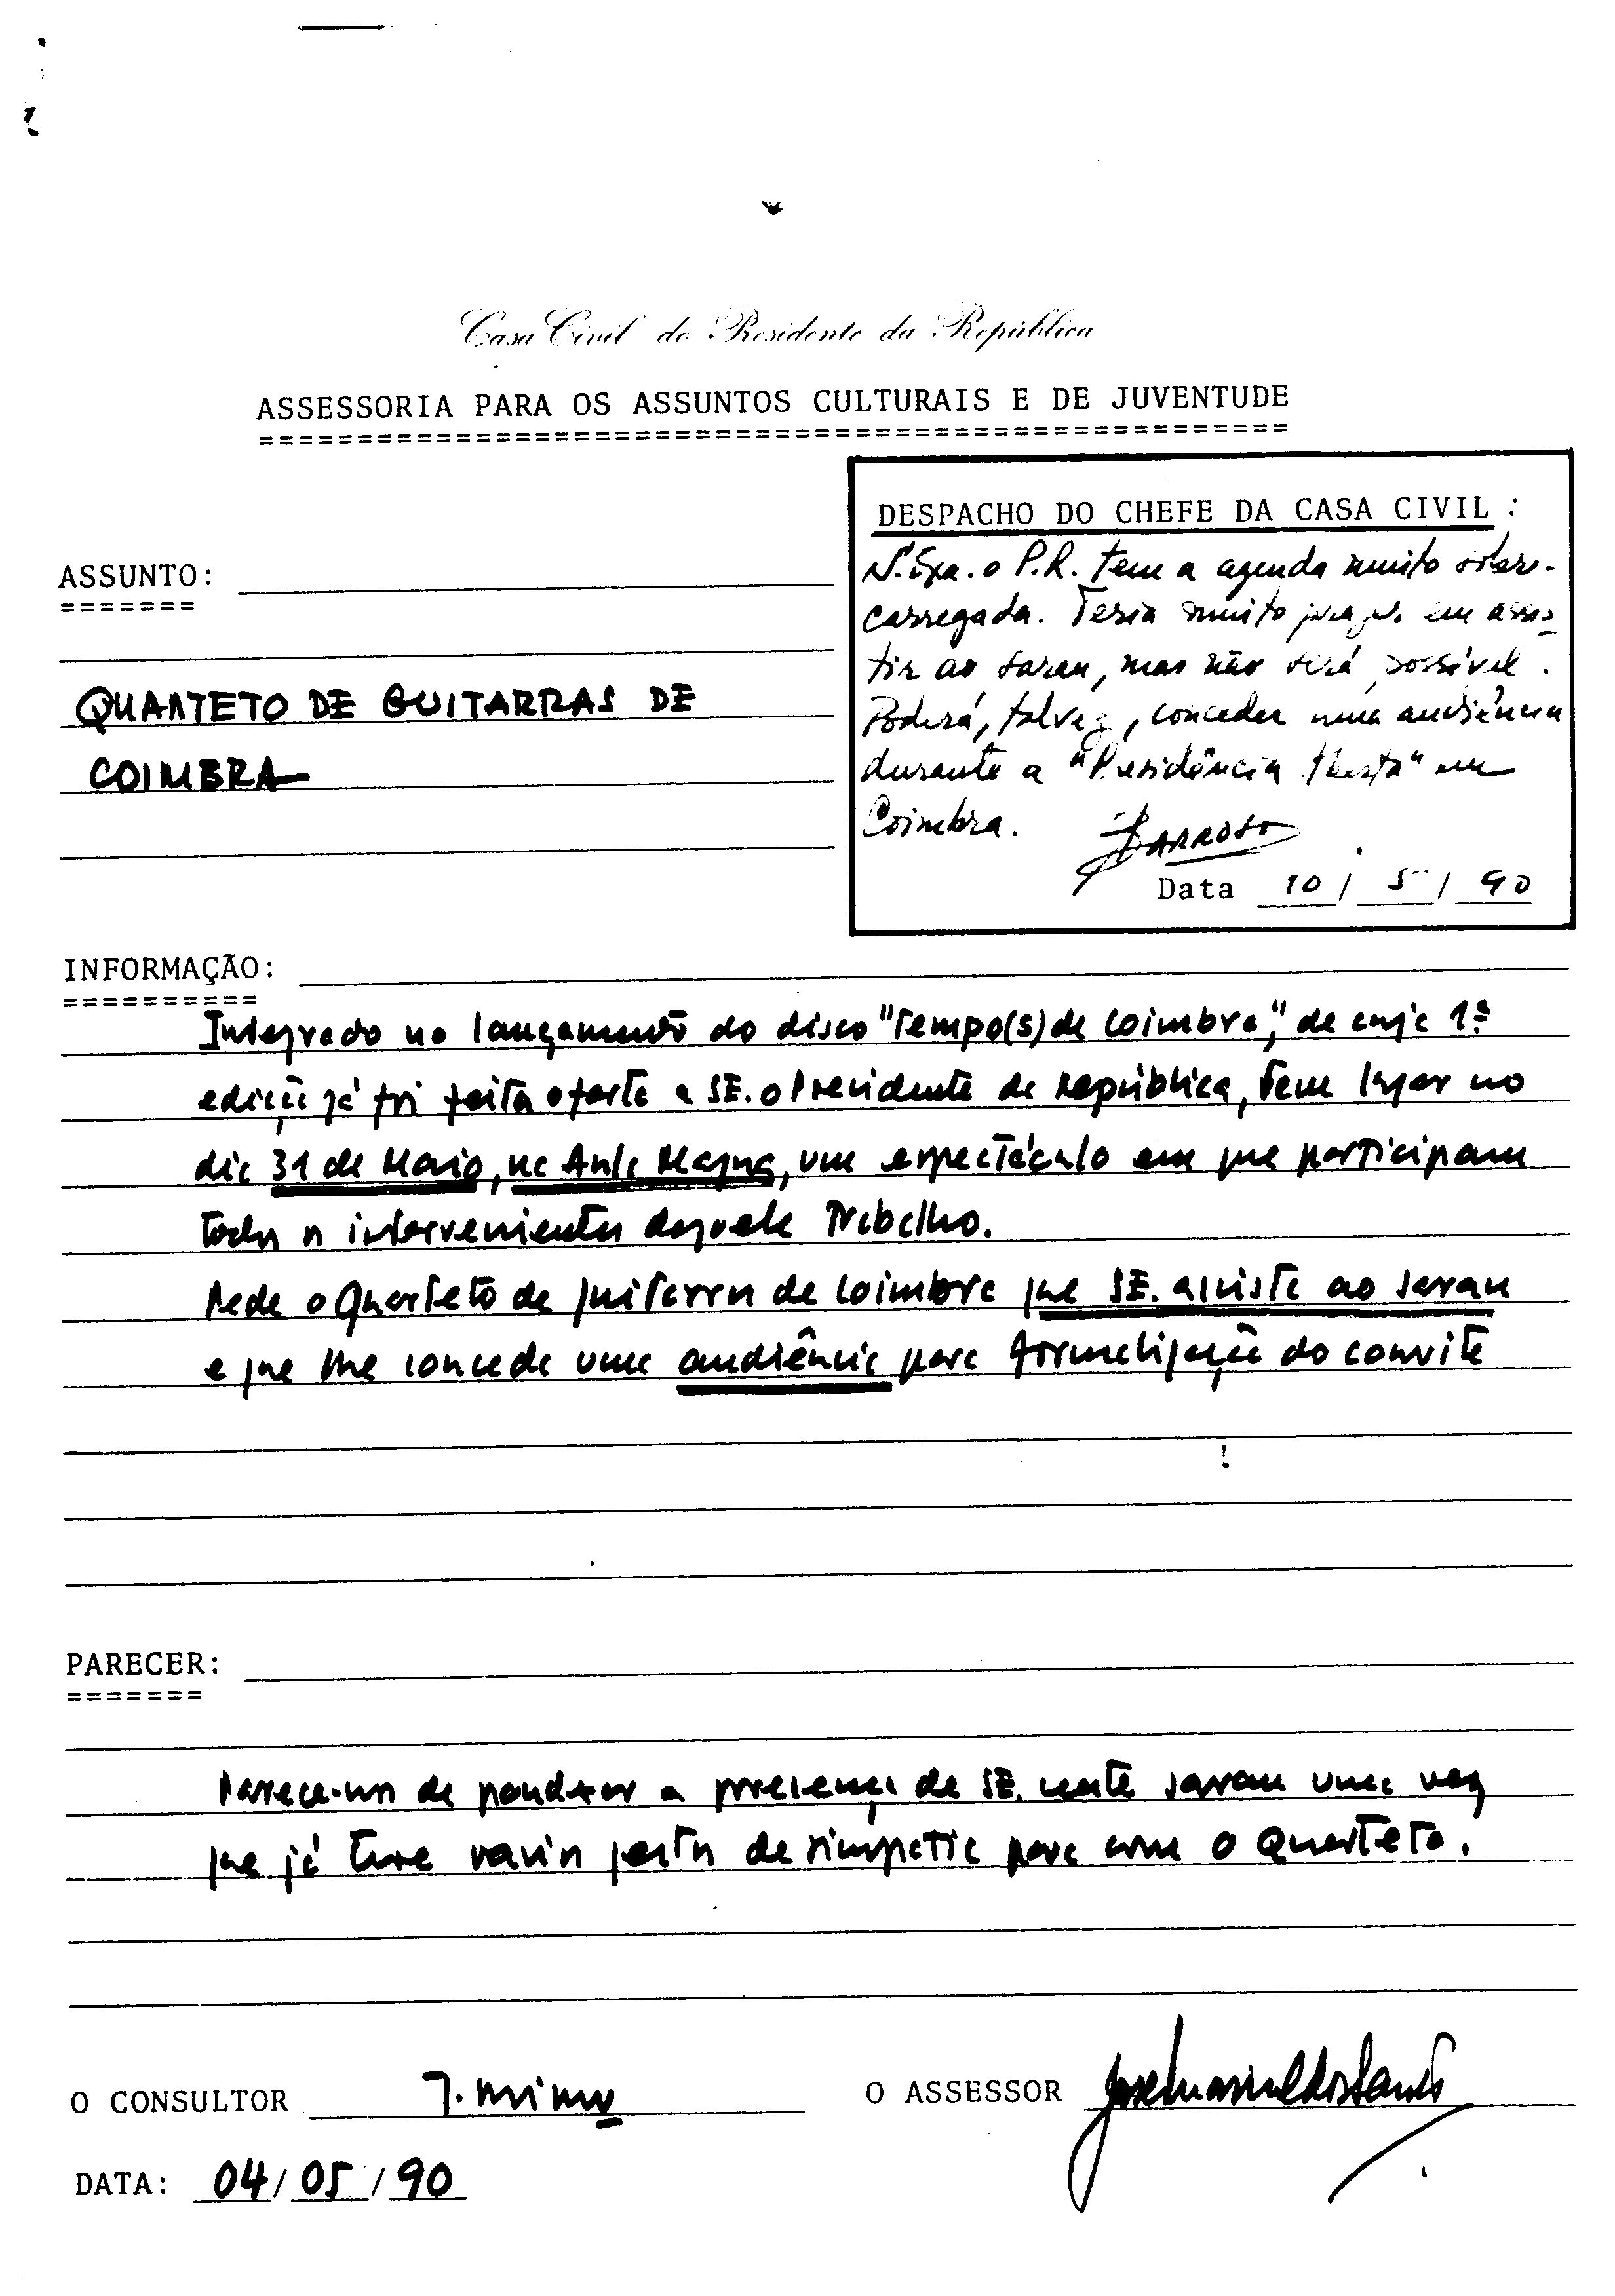 Casa Civil do Presidente da República
ASSESSORIA PARA OS ASSUNTOS CULTURAIS E DE JUVENTUDE
====================================================
ASSUNTO:
=======
QUARTETO DE GUITARRAS DE
COIMBRA
DESPACHO DO CHEFE DA CASA CIVIL :
S. Exa. o P.R. tem a agenda muito sobre-
carregada. Teria muito prazer em assis-
tir ao sarau, mas não será possível.
Poderá, talvez, conceder uma audiência
durante a "Presidência Aberta" em
Coimbra.
BARROSO
Data 10 / 5 / 90
INFORMAÇÃO:
==========
Integrado no lançamento do disco "Tempo(s) de Coimbra", de cuja 1.ª
edição já foi feita oferta a SE. o Presidente da República, tem lugar no
dia 31 de Maio, na Aula Magna, um espectáculo em que participam
todos os intervenientes daquele trabalho.
Pede o Quarteto de guitarras de Coimbra que SE. assista ao sarau
e que lhe conceda uma audiência para formalização do convite
PARECER:
=======
Parece-nos de ponderar a presença de SE. neste sarau uma vez
que já teve vários gestos de simpatia para com o Quarteto.
O CONSULTOR
O ASSESSOR
DATA: 04 / 05 / 90